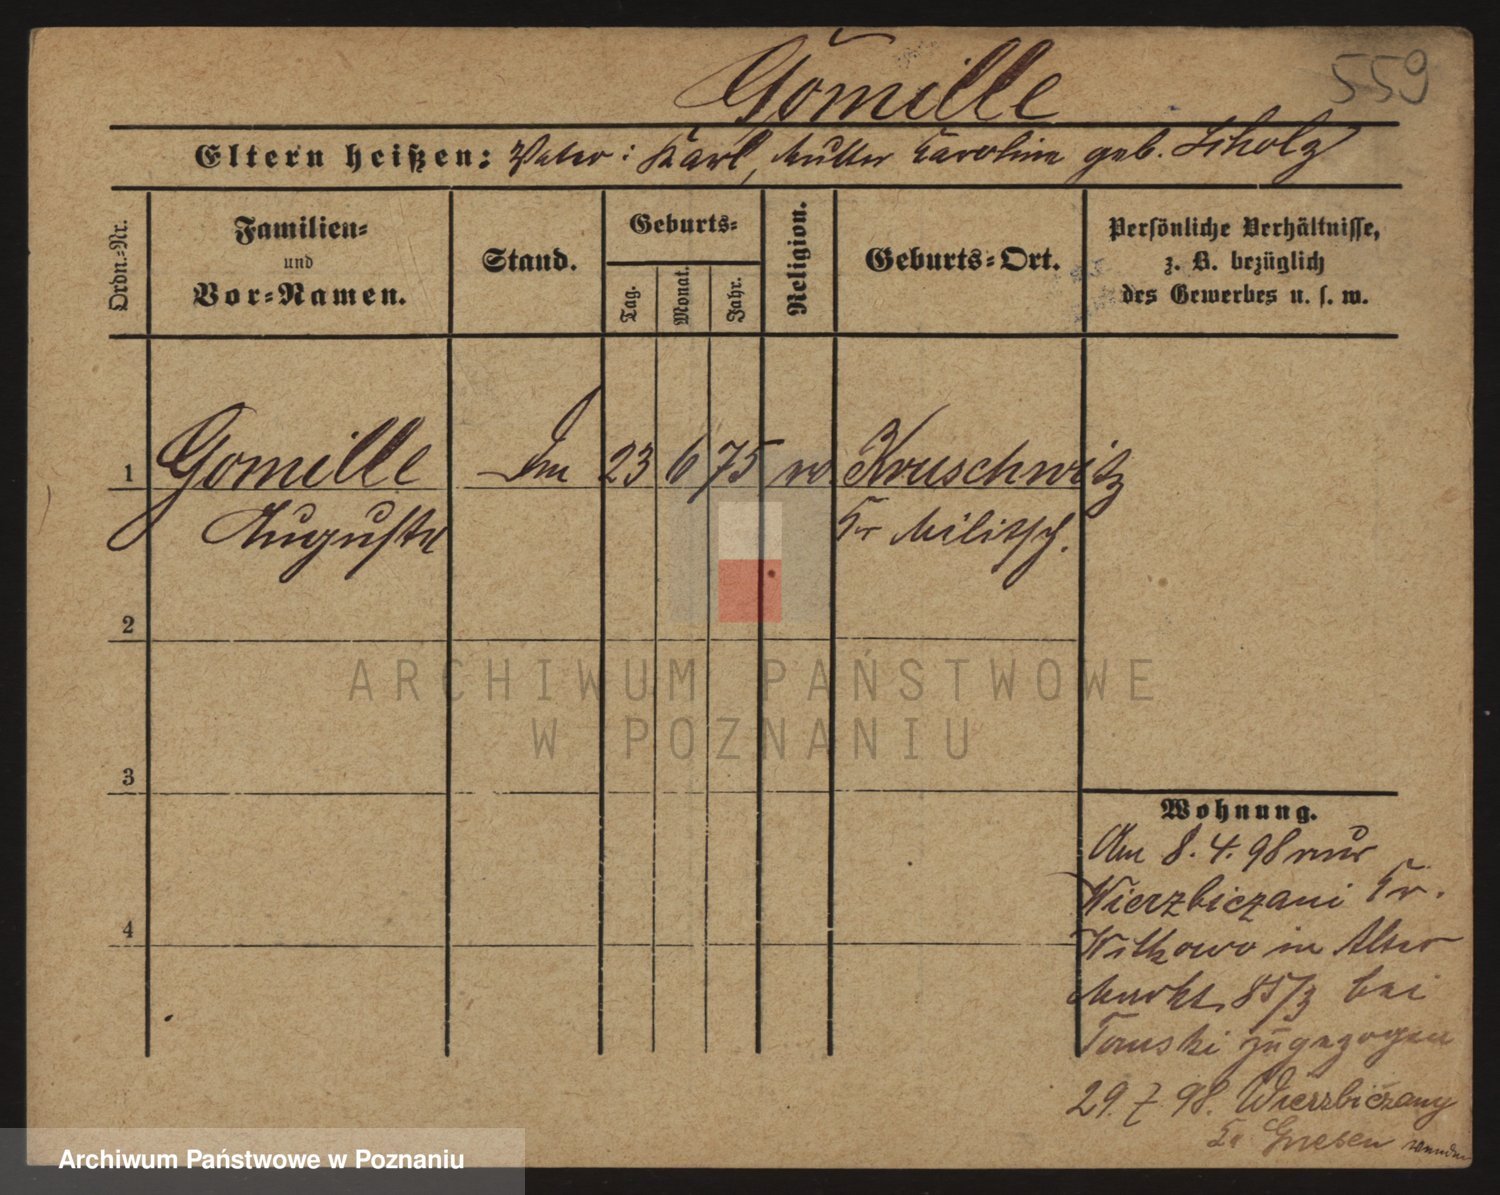 Gomille
559
Eltern heißen: Vater: Karl, Mutter Karoline geb. Scholz
Ordn.-Nr.
Familien-
und
Vor-Namen.
Stand.
Geburts-
Tag.
Monat.
Jahr.
Religion.
Geburts-Ort.
Persönliche Verhältnisse,
z. B. bezüglich
des Gewerbes u. s. w.
1 Gomille 23 6 75 Kruschwitz
Auguste Kr Militsch.
2
3
4
Wohnung.
Am 8. 4. 98 aus
Wierzbiczani Kr.
Witkowo in Alter
Markt 85/3 bei
Tomski zugezogen
29. 7. 98. Wierzbiczany
Kr Gnesen
ARCHIWUM PAŃSTWOWE
W POZNANIU
Archiwum Państwowe w Poznaniu